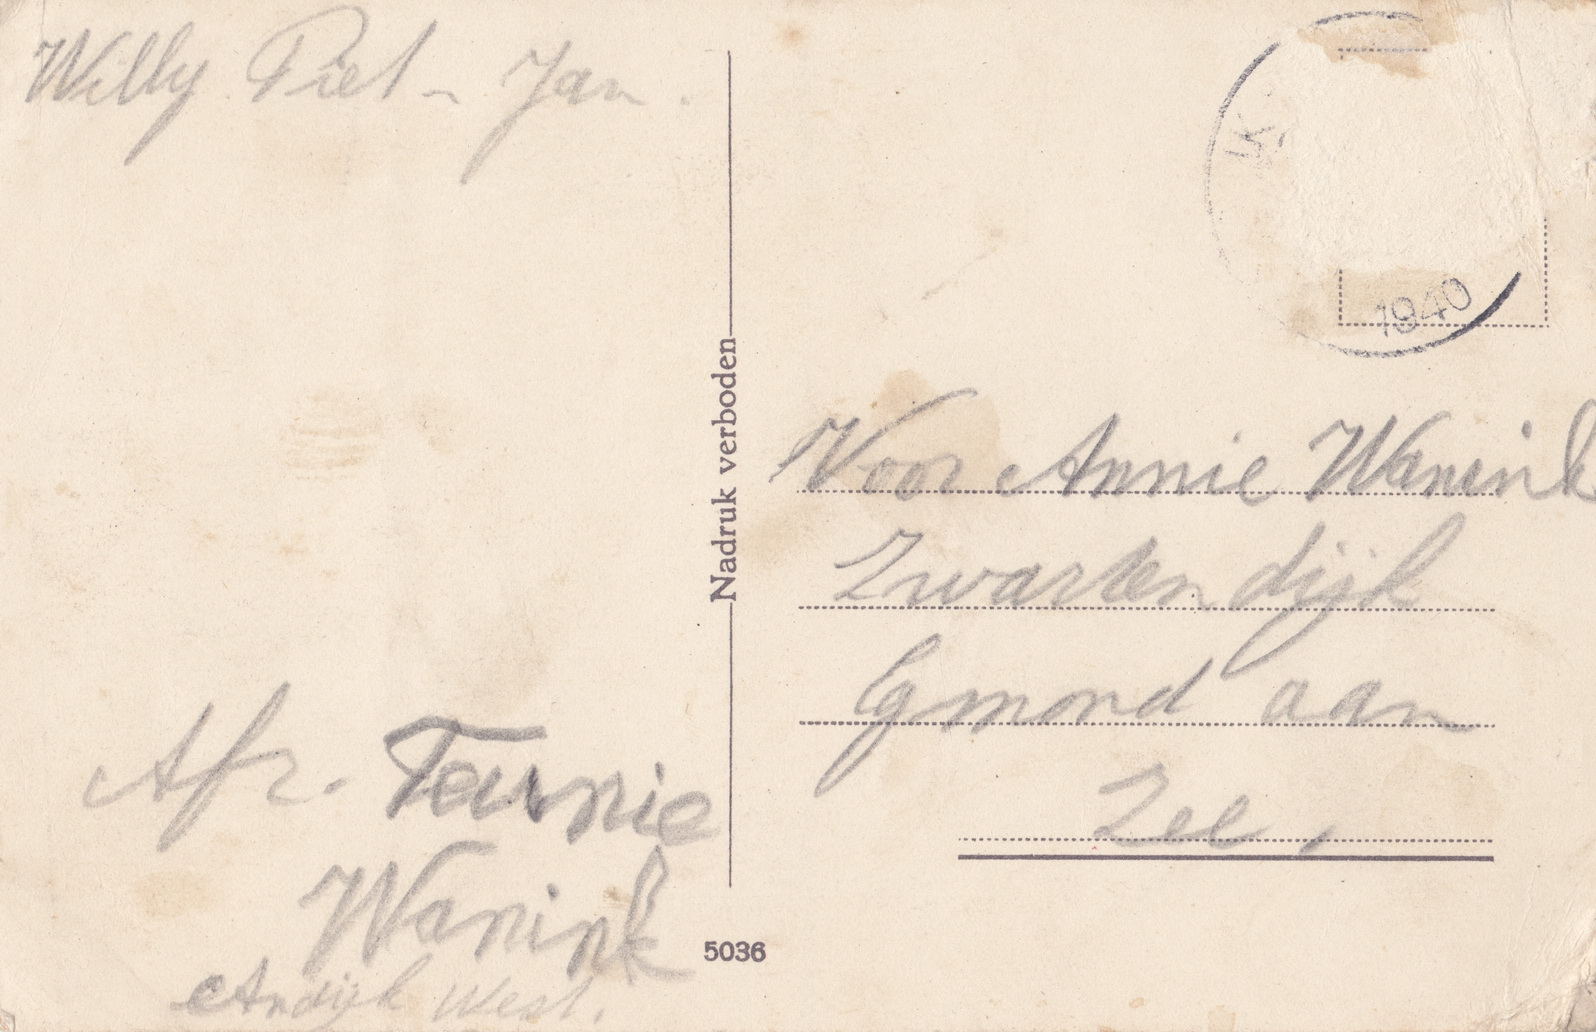 Willy Piet - Jan.
Afz. Teunie
Wanink
Andijk West.
Nadruk verboden
5036
1940
Voor Annie Wanink
Zwarten dijk
Egmond aan
Zee,